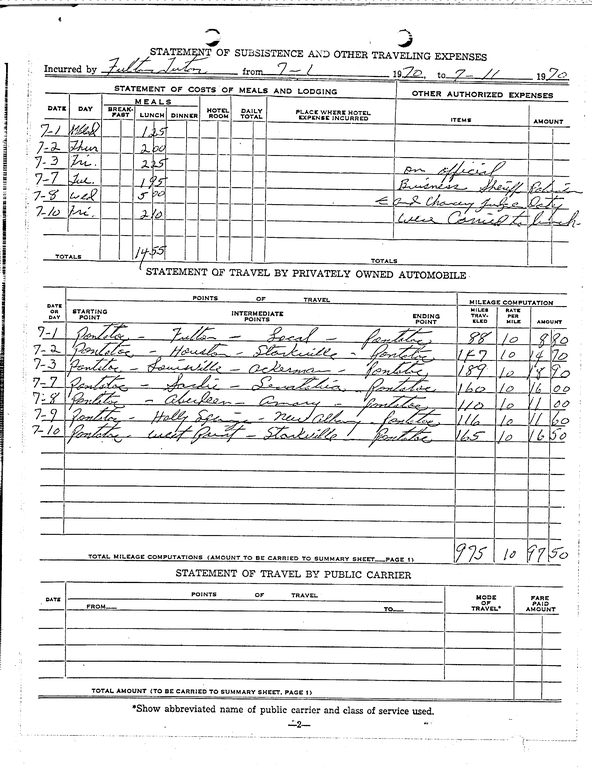 STATEMENT OF SUBSISTENCE AND OTHER TRAVELING EXPENSES
Incurred by Fulton Tutor from 7-1 1970, to 7-11 1970
STATEMENT OF COSTS OF MEALS AND LODGING OTHER AUTHORIZED EXPENSES
MEALS
DATE DAY BREAK-FAST LUNCH DINNER HOTEL ROOM DAILY TOTAL PLACE WHERE HOTEL EXPENSE INCURRED ITEMS AMOUNT
7-1 Wed 1 25
7-2 Thur 2 00
7-3 Fri. 2 25 on official
7-7 Tue. 1 95 Buisness Sheriff
7-8 Wed 5 00 and Judge
7-10 Fri. 2 10 were Carried to lunch.
TOTALS 14 55 TOTALS
STATEMENT OF TRAVEL BY PRIVATELY OWNED AUTOMOBILE
POINTS OF TRAVEL MILEAGE COMPUTATION
DATE OR DAY STARTING POINT INTERMEDIATE POINTS ENDING POINT MILES TRAV-ELED RATE PER MILE AMOUNT
7-1 Pontotoc - Fulton - Local - Pontotoc 88 10 8 80
7-2 Pontotoc - Houston - Starkville - Pontotoc 147 10 14 70
7-3 Pontotoc - Louisville - Ackerman - Pontotoc 189 10 18 90
7-7 Pontotoc - Sardis - Senatobia - Pontotoc 160 10 16 00
7-8 Pontotoc - Aberdeen - Amory - Pontotoc 110 10 11 00
7-9 Pontotoc - Holly Springs - New Albany - Pontotoc 116 10 11 60
7-10 Pontotoc - West Point - Starkville - Pontotoc 165 10 16 50
TOTAL MILEAGE COMPUTATIONS (AMOUNT TO BE CARRIED TO SUMMARY SHEET, PAGE 1) 975 10 97 50
STATEMENT OF TRAVEL BY PUBLIC CARRIER
DATE POINTS OF TRAVEL MODE OF TRAVEL* FARE PAID AMOUNT
FROM TO
TOTAL AMOUNT (TO BE CARRIED TO SUMMARY SHEET, PAGE 1)
*Show abbreviated name of public carrier and class of service used.
—2—